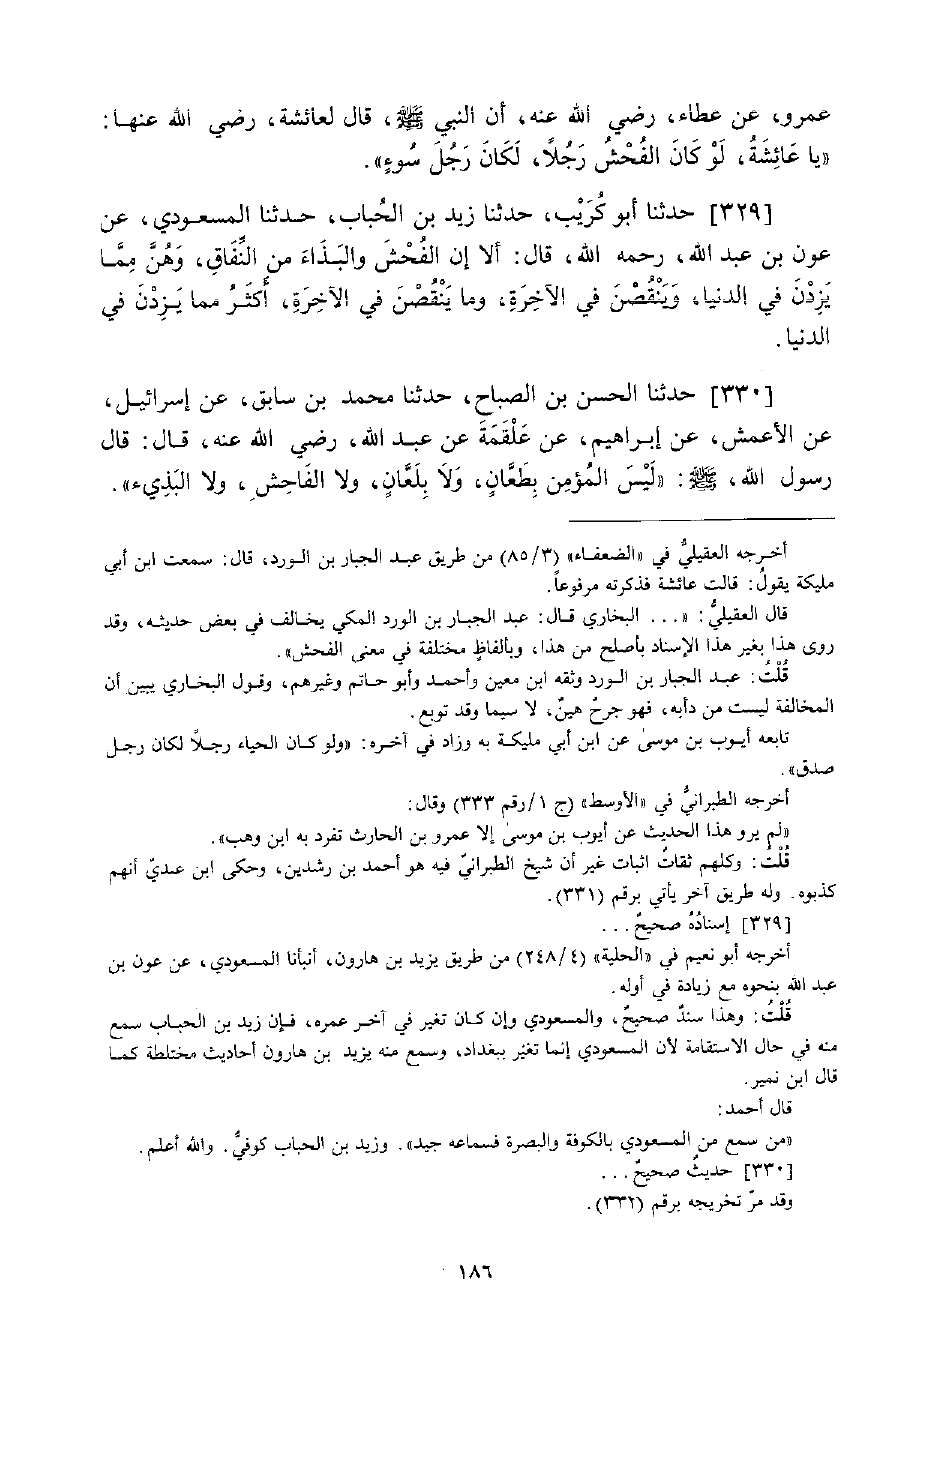 عمرو، عن عطاء، رضي الله عنه، أن النبي ﷺ، قال لعائشة، رضي الله عنها:
«يا عَائِشَةُ، لَوْ كَانَ الفُحْشُ رَجُلاً، لَكَانَ رَجُلَ سُوءٍ».
[٣٢٩] حدثنا أبو كُرَيْب، حدثنا زيد بن الحُباب، حدثنا المسعودي، عن
عون بن عبد الله، رحمه الله، قال: ألا إن الفُحْشَ والبَذَاءَ من النِّفَاقِ، وَهُنَّ مِمَّا
يَزِدْنَ في الدنيا، وَيَنْقُصْنَ في الآخِرَةِ، وما يَنْقُصْنَ في الآخِرَةِ، أَكثَرُ مما يَزِدْنَ في
الدنيا.
[٣٣٠] حدثنا الحسن بن الصباح، حدثنا محمد بن سابق، عن إسرائيل،
عن الأعمش، عن إبراهيم، عن عَلْقَمَةَ عن عبد الله، رضي الله عنه، قال: قال
رسول الله، ﷺ: «لَيْسَ المُؤمِن بِطَعَّانٍ، وَلاَ بِلَعَّانٍ، ولا الفَاحِشِ، ولا البَذِيء».
أخرجه العقيليُّ في «الضعفاء» (٨٥/٣) من طريق عبد الجبار بن الورد، قال: سمعت ابن أبي
مليكة يقولُ: قالت عائشة فذكرته مرفوعاً.
قال العقيليُّ: «... البخاري قال: عبد الجبار بن الورد المكي يخالف في بعض حديثه، وقد
روى هذا بغير هذا الإسناد بأصلح من هذا، وبألفاظٍ مختلفة في معنى الفحش».
قُلْتُ: عبد الجبار بن الورد وثقه ابن معين وأحمد وأبو حاتم وغيرهم، وقول البخاري يبين أن
المخالفة ليست من دأبه، فهو جرحٌ هينٌ، لا سيما وقد توبع.
تابعه أيوب بن موسىٰ عن ابن أبي مليكة به وزاد في آخره: «ولو كان الحياء رجلاً لكان رجل
صدق».
أخرجه الطبرانيُّ في «الأوسط» (ج ١/رقم ٣٣٣) وقال:
«لم يرو هذا الحديث عن أيوب بن موسىٰ إلا عمرو بن الحارث تفرد به ابن وهب».
قُلْتُ: وكلهم ثقاتٌ اثبات غير أن شيخ الطبرانيّ فيه هو أحمد بن رشدين، وحكى ابن عديّ أنهم
كذبوه. وله طريق آخر يأتي برقم (٣٣١).
[٣٢٩] إسنادُهُ صحيحٌ...
أخرجه أبو نعيم في «الحلية» (٢٤٨/٤) من طريق يزيد بن هارون، أنبأنا المسعودي، عن عون بن
عبد الله بنحوه مع زيادة في أوله.
قُلْتُ: وهذا سندٌ صحيحٌ، والمسعودي وإن كان تغير في آخر عمره، فإن زيد بن الحباب سمع
منه في حال الاستقامة لأن المسعودي إنما تغير ببغداد، وسمع منه يزيد بن هارون أحاديث مختلطة كما
قال ابن نمير.
قال أحمد:
«من سمع من المسعودي بالكوفة والبصرة فسماعه جيد». وزيد بن الحباب كوفيٌّ. والله أعلم.
[٣٣٠] حديثٌ صحيحٌ...
وقد مرّ تخريجه برقم (٣٣٢).
١٨٦